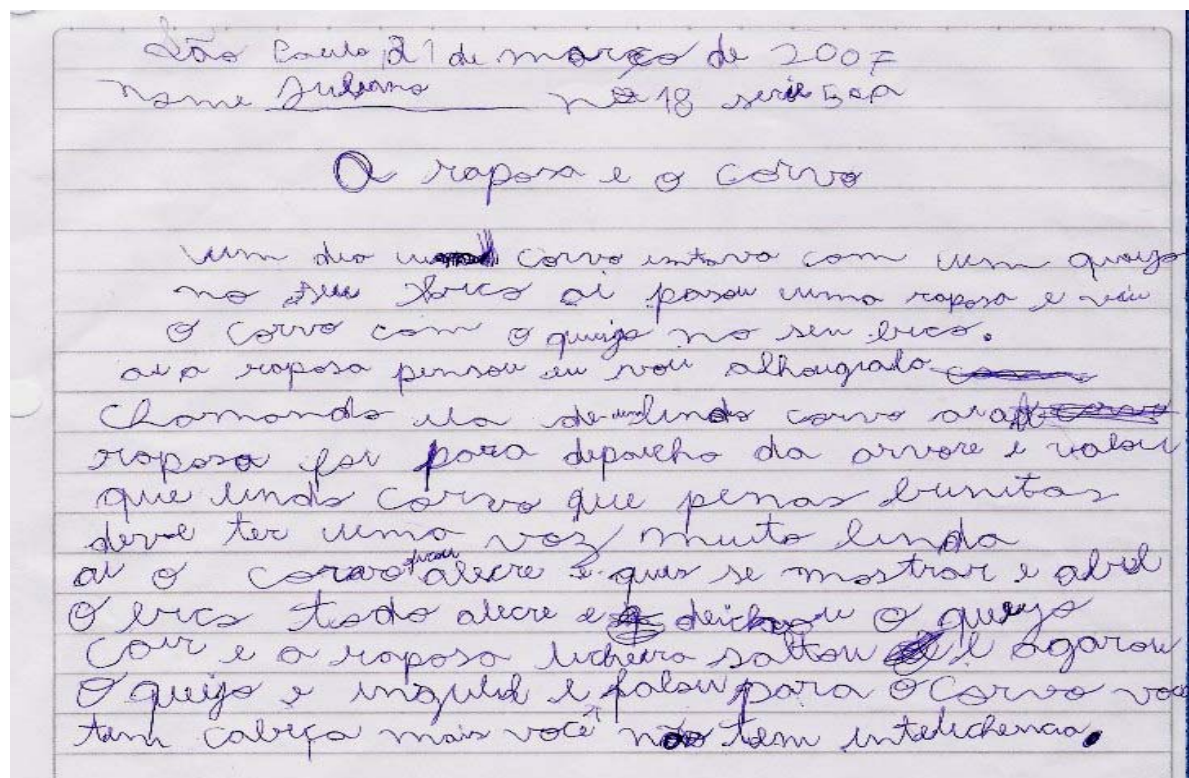 São Paulo, 21 de março de 2007
Nome Juliano nº 18 serie 5ªA
A raposa e o corvo
Um dia um corvo estava com um queijo
no seu bico ai pasou uma raposa e viu
o corvo com o queijo no seu bico.
ai a raposa pensou eu vou
chamando de lindo corvo a
raposa foi para depaicho da arvore e valou
que lindo corvo que penas bunitas
deve ter uma voz muito linda
ai o corvo ficou alecre e quis se mostrar e abril
o bico todo alecre e deichou o queijo
cair e a raposa licheira saltou e agarou
o queijo e ingulil e falou para o corvo você
tem cabeça mais você não tem intelichencia.